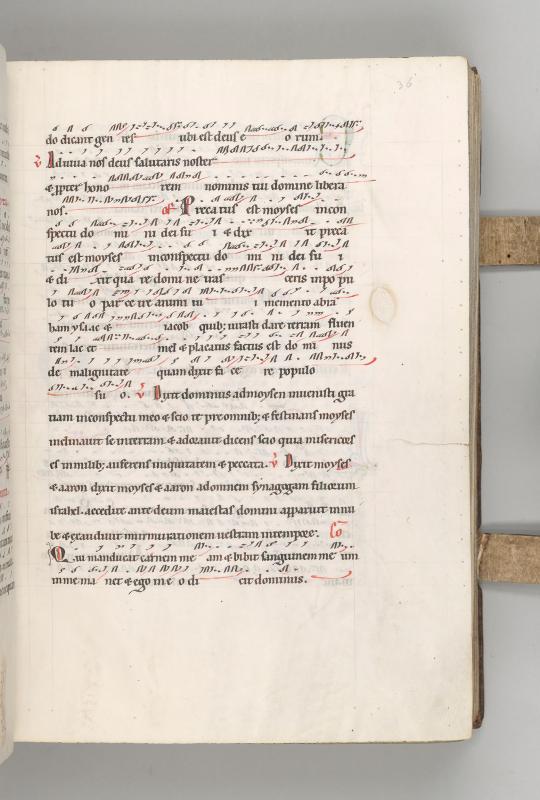 36
do dicant gen tes ubi est deus e o rum.
v Adiuua nos deus salutaris noster
& ppter hono rem nominis tui domine libera
nos. of Precatus est moyses in con
spectu do mi ni dei su i & dix it preca
tus est moyses in conspectu do mi ni dei su i
& di xit qua re domi ne iras ceris in po pu
lo tu o par ce ire anim tu i memento abra
ham ysaac & iacob quib; iurasti dare terram fluen
tem lac et mel & placatus factus est do mi nus
de malignitate quam dixit fa ce re populo
su o. v Dixit dominus ad moysen inuenisti gra
tiam in conspectu meo & scio te pre omnib; & festinans moyses
inclinauit se in terram & adorauit dicens scio quia misericors
es in milib; auferens iniquitatem & peccata. v Dixit moyses
& aaron dixit moyses & aaron ad omnem synagogam filiorum
israhel. accedite ante deum maiestas domini apparuit in nu
be & exaudiuit murmurationem uestram in tempore. Co
Qui manducat carnem me am & bibit sanguinem me um
in me ma net & ego in e o di cit dominus.